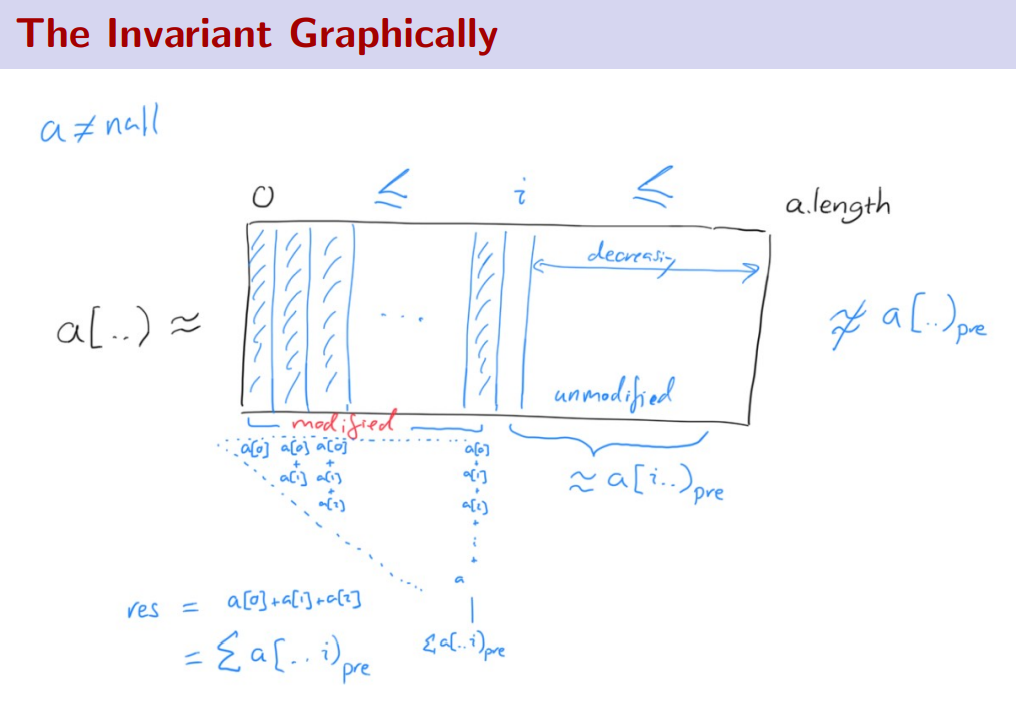 The Invariant Graphically
a ≠ null
0 ≤ i ≤ a.length
decreasing
a[..) ≈ ... ≉ a[..)pre
unmodified
modified
a[0] a[0] a[0] a[0]
+ + +
a[1] a[1] a[1]
+ +
a[2] a[2]
≈ a[i..)pre
+
⋮
+
a
res = a[0]+a[1]+a[2]
= Σ a[..i)pre
Σa[..i)pre